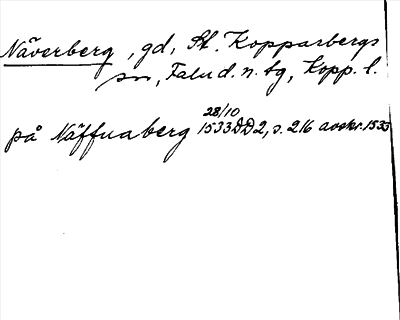 Näverberg, gd, St. Kopparbergs
sn, Falu d. n. tg, Kopp. l.
28/10
på Näffuaberg 1533 DD2, s. 216 avskr. 1533